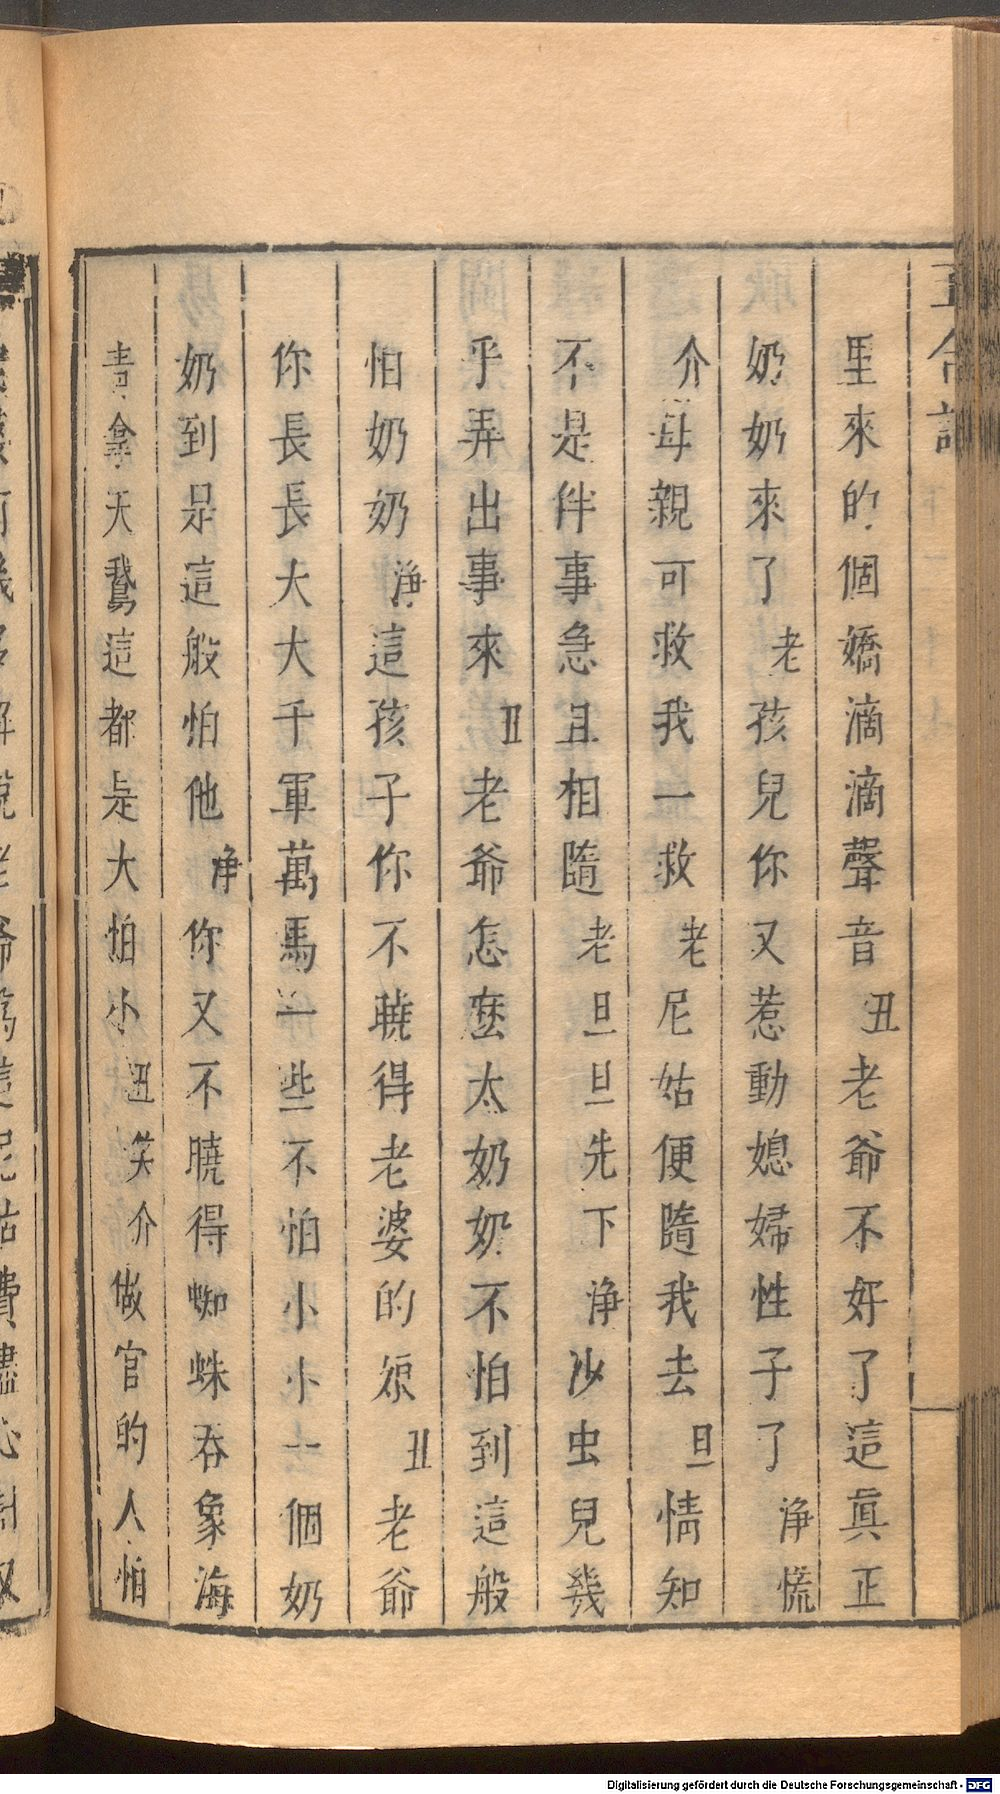 里來的個嬌滴滴聲音丑老爺不好了這眞正
奶奶來了老孩兒你又惹動媳婦性子了淨慌
介母親可救我一救老尼姑便隨我去旦情知
不是伴事急且相隨老旦旦先下淨沙虫兒幾
乎弄出事來丑老爺怎麽太奶奶不怕到這般
怕奶奶淨這孩子你不曉得老婆的利丑老爺
你長長大大千軍萬馬一些不怕小小一個奶
奶到是這般怕他净你又不曉得蜘蛛吞象海
青拿天鵝這都是大怕小丑笑介做官的人怕
Digitalisierung gefördert durch die Deutsche Forschungsgemeinschaft - DFG